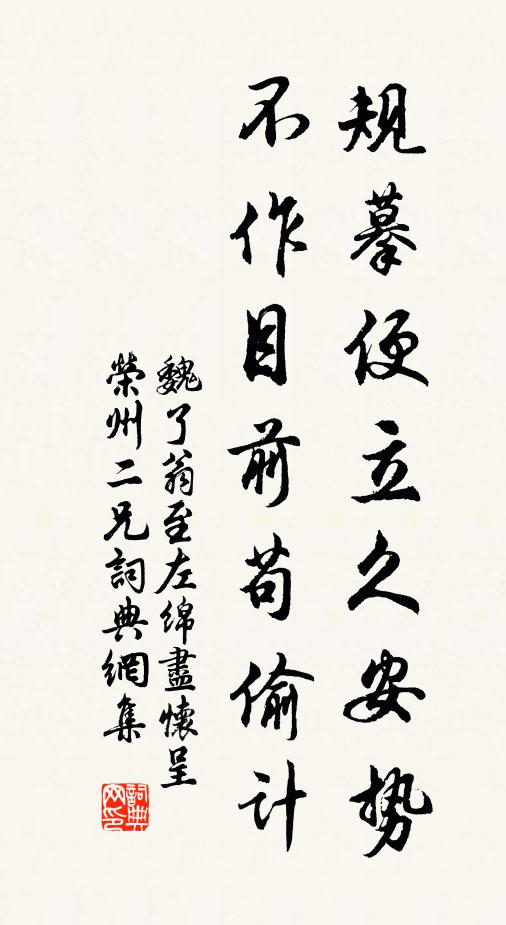 規摹便立久安势
不作目前苟偷計
魏了翁至左绵盡懷呈
榮州二兄詞典網集
詞典网印